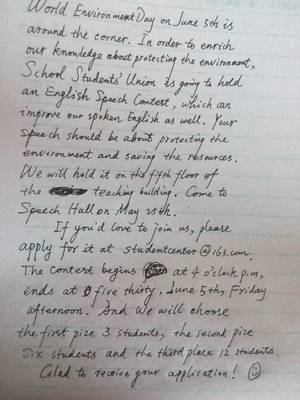 World Environment Day on June 5th is
around the corner. In order to enrich
our knowledge about protecting the environment,
School Students' Union is going to hold
an English Speech Contest, which can
improve our spoken English as well. Your
speech should be about protecting the
environment and saving the resources.
We will hold it on the fifth floor of
the teaching building. Come to
Speech Hall on May 25th.
If you'd love to join us, please
apply for it at studentcenter@163.com.
The contest begins at 4 o'clock p.m,
ends at five thirty, June 5th, Friday
afternoon. And we will choose
the first pize 3 students, the second pize
six students and the third place 12 students.
Glad to receive your application!